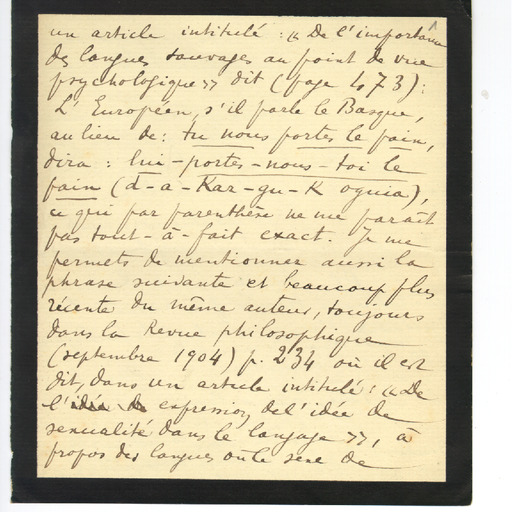 un article intitulé : « De l'importance
des langues sauvages au point de vue
psychologique » dit (page 473) :
L'Européen, s'il parle le Basque,
au lieu de : tu nous portes le pain,
dira : lui-portes-nous-toi le
pain (d-a-Kar-gu-K oguia),
ce qui par parenthèse ne me paraît
pas tout-à-fait exact. Je me
permets de mentionner aussi la
phrase suivante et beaucoup plus
récente du même auteur, toujours
dans la Revue philosophique
(septembre 1904) p. 234 où il est
dit, dans un article intitulé : « De
l'idée de expression de l'idée de
sexualité dans le langage », à
propos des langues où le sexe de